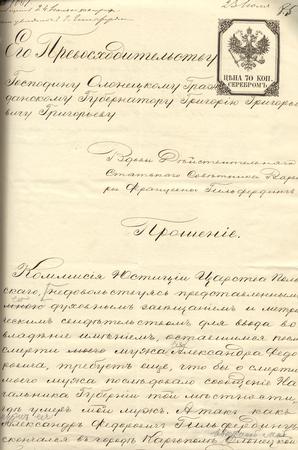 23 Июля
Его Превосходительству
ЦѢНА 70 КОП.
СЕРЕБРОМЪ.
Господину Олонецкому Граж
данскому Губернатору Григорію Григорье
вичу Григорьеву
Вдовы Дѣйствительнаго
Статскаго Совѣтника Варва
ры Францевны Гильфердингъ
Прошеніе.
Коммисія Юстиціи Царства Поль
скаго, недовольствуясь представленнымъ
много духовнымъ завѣщаніемъ и метри
ческимъ свидѣтельствомъ для ввода во
владѣніе имѣніемъ, оставшимся послѣ
смерти моего мужа Александра Ѳедо
ровича, требуетъ еще, что бы о смерти
моего мужа послѣдовало сообщеніе На
чальника Губерніи той мѣстности
гдѣ умеръ мой мужъ. А такъ какъ
Александръ Ѳедоровичъ Гильфердингъ
скончался въ городѣ Каргополѣ Олонецкой